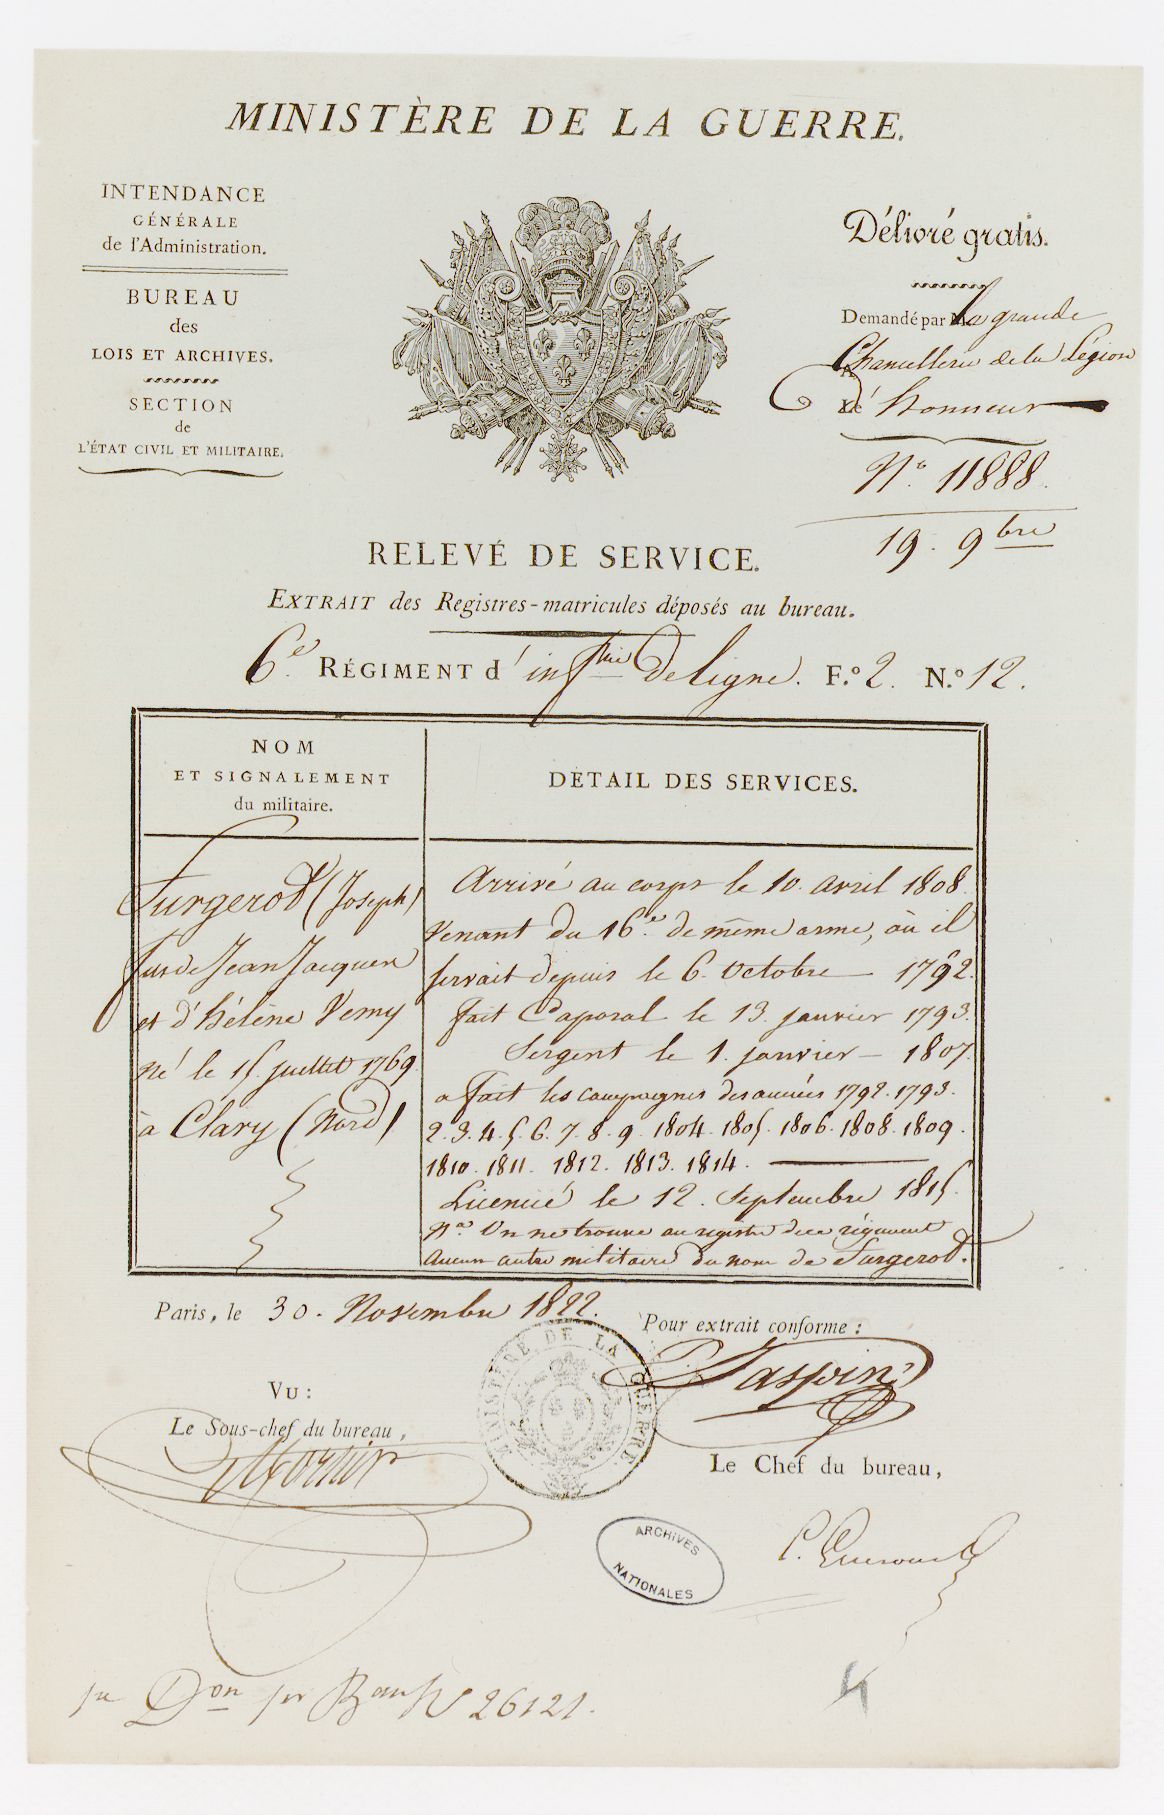 MINISTÈRE DE LA GUERRE.
INTENDANCE
GÉNÉRALE
de l'Administration.
BUREAU
des
LOIS ET ARCHIVES.
SECTION
de
L'ÉTAT CIVIL ET MILITAIRE.
Délivré gratis.
Demandé par la grande
Chancellerie de la Légion
d'honneur
N.° 11888.
19. 9bre
RELEVÉ DE SERVICE.
EXTRAIT des Registres-matricules déposés au bureau.
6.e RÉGIMENT d'infrie De ligne. F.° 2. N.° 12.
NOM
ET SIGNALEMENT
du militaire.
DÉTAIL DES SERVICES.
Surgerod (Joseph)
fils de Jean Jacques
et d'hélène Vemy
né le 15. juillet 1769
à Clary (Nord)
Arrivé au corps le 10. avril 1808.
Venant du 16.e de même arme, où il
servait depuis le 6. Octobre 1792.
fait Caporal le 13. janvier 1793.
Sergent le 1. janvier 1807.
a fait les campagnes des années 1792. 1793.
2. 3. 4. 5. 6. 7. 8. 9. 1804. 1805. 1806. 1808. 1809.
1810. 1811. 1812. 1813. 1814.
Licencié le 12. Septembre 1815.
Na On ne trouve au registre de ce régiment
Aucun autre militaire du nom de Surgerod.
Paris, le 30. Novembre 1822.
Pour extrait conforme :
MINISTÈRE DE LA GUERRE.
VU :
Le Sous-chef du bureau,
Le Chef du bureau,
ARCHIVES
NATIONALES
26121.
4